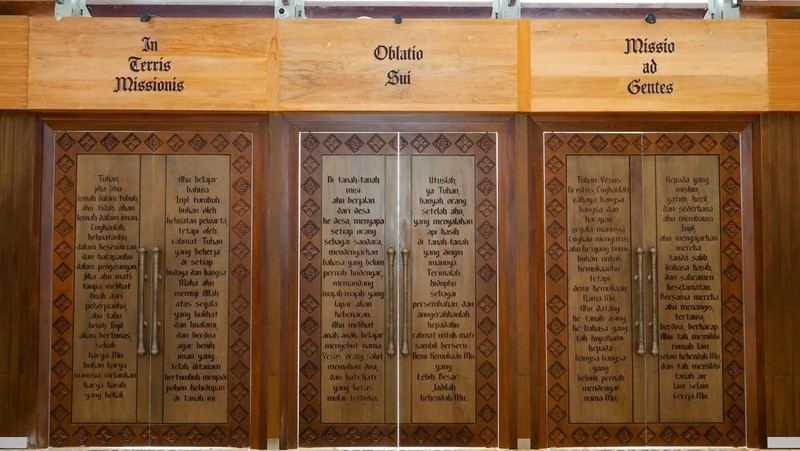 In
Terris
Missionis
Oblatio
Sui
Missio
ad
Gentes
Tuhan,
jika aku
lemah dalam tubuh,
aku tidak akan
lemah dalam iman.
Engkaulah
kekuatanku
dalam kesendirian
dan harapanku
dalam pengasingan.
Jika aku mati
tanpa melihat
buah dari
pekerjaanku,
aku tahu
benih Injil
akan bertunas,
sebab
karya-Mu
bukan karya
manusia, melainkan
karya kasih
yang kekal.
Aku belajar
bahwa
Injil tumbuh
bukan oleh
kekuatan pewarta,
tetapi oleh
rahmat Tuhan
yang bekerja
di setiap
budaya dan bangsa
Maka aku
memuji Allah
atas segala
yang kulihat
dan kualami,
dan berdoa
agar benih
iman yang
telah ditanam
bertumbuh menjadi
pohon kehidupan
di tanah ini
Di tanah-tanah
misi
aku berjalan
dari desa
ke desa, menyapa
setiap orang
sebagai saudara,
mendengarkan
bahasa yang belum
pernah kudengar,
memandang
wajah-wajah yang
lapar akan
kebenaran.
Aku melihat
anak-anak belajar
mengenal nama
Yesus, orang sakit
memohon doa,
dan hati-hati
yang keras
mulai terbuka.
Utuslah,
ya Tuhan,
banyak orang
setelah aku,
yang menyalakan
api kasih
di tanah-tanah
yang dingin
imannya.
Terimalah
hidupku
sebagai
persembahan, dan
anugerahkanlah
kepadaku
rahmat untuk mati
sambil berseru:
Demi Kemuliaan-Mu
yang
Lebih Besar —
Jadilah
kehendak-Mu.
Tuhan Yesus
Kristus, Engkaulah
cahaya bangsa-
bangsa dan
harapan
segala manusia
Engkau mengutus
aku ke ujung bumi
bukan untuk
kemuliaanku
tetapi
demi kemuliaan
Nama-Mu.
Aku datang
ke tanah asing,
ke bahasa yang
tak kupahami,
kepada
bangsa-bangsa
yang
belum pernah
mendengar
nama-Mu.
Kepada yang
miskin,
yatim, kecil,
dan sederhana
aku membawa
Injil,
aku mengajarkan
mereka
tanda salib,
bahasa kasih,
dan sakramen
keselamatan.
Bersama mereka
aku menangis,
tertawa,
berdoa, berharap
Aku tak memiliki
rumah lain
selain kehendak-Mu
dan tak memiliki
tanah air
lain selain
Gereja-Mu.